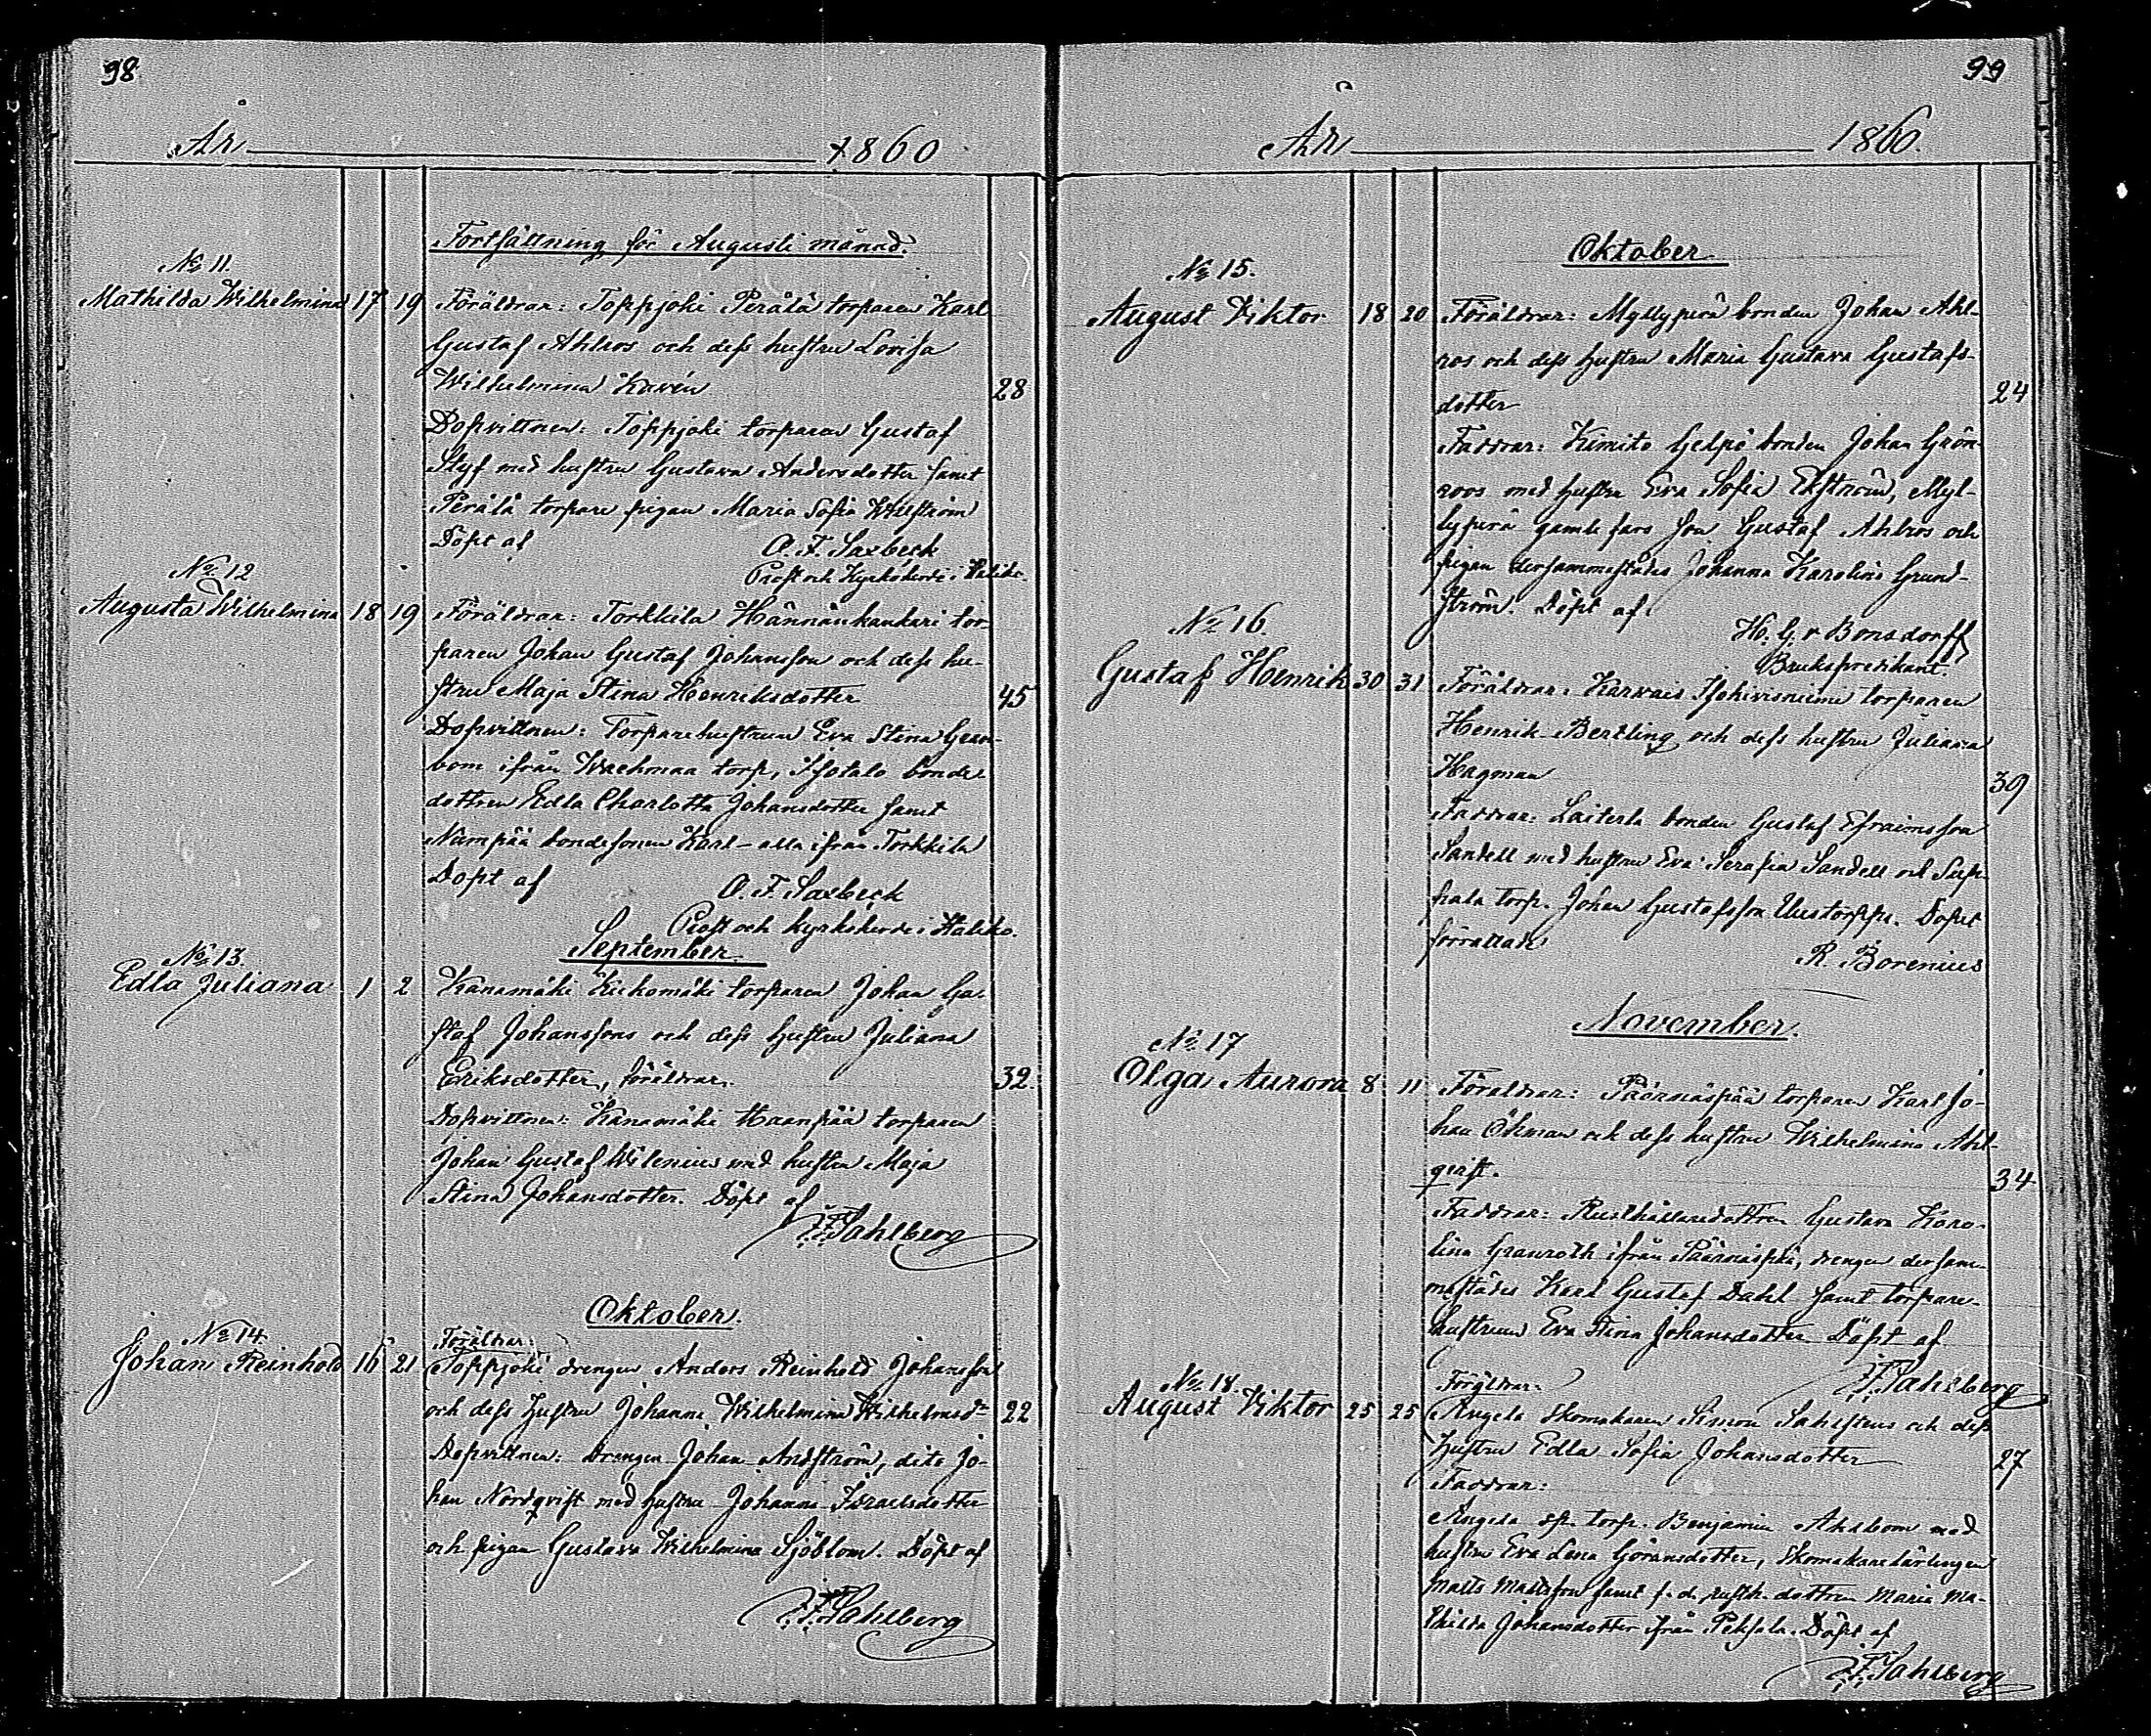 98
År 1860
Fortsättning för Augusti månad.
No 11.
Mathilda Wilhelmina 17 19 Föräldrar: Toppjoki Perälä torparen Karl
Gustaf Ahlros och dess hustru Lovisa
Wilhelmina Kavén 28
Dopvittnen: Toppjoki torparen Gustaf
Styf med hustru Gustava Andersdotter samt
Perälä torpare pigan Maria Sofia
Döpt af O. F. Saxbeck
Prost och Kyrkoherde i Haliko.
No 12
Augusta Wilhelmina 18 19 Föräldrar: Torkkila Hännänkankari tor-
paren Johan Gustaf Johansson och dess hu-
stru Maja Stina Henriksdotter 45
Dopvittnen: Torparehustrun Eva Stina Gran-
bom ifrån Wachmaa torp, Isotalo bonde
dottren Edla Charlotta Johansdotter samt
Numpää bondesonen Karl - alla ifrån Torkkila
Döpt af O. F. Saxbeck
Prost och kyrkoherde i Haliko.
September
No 13.
Edla Juliana 1 2 Kanamäki Kiekomäki torparen Johan Gu-
staf Johanssons och dess hustru Juliana
Eriksdotter, föräldrar. 32.
Dopvittnen: Kanamäki Haanpää torparen
Johan Gustaf Wilenius med hustru Maja
Stina Johansdotter. Döpt af
F. F. Sahlberg
Oktober.
No 14.
Föräldrar:
Johan Reinhold 16 21 Toppjoki drengen Anders Reinhold Johansson
och dess hustru Johanna Wilhelmina Wilhelmsdr 22
Dopvittnen: drengen Johan Andström, dito Jo-
han Nordqvist med hustru Johanna Israelsdotter
och pigan Gustava Wilhelmina Sjöblom. Döpt af
F. F. Sahlberg
99
År 1860.
Oktober
No 15.
August Viktor 18 20 Föräldrar: Myllyperä bonden Johan Ahl-
ros och dess hustru Maria Gustava Gustafs-
dotter 24
Faddrar: Kimito Helpö bonden Johan Grön-
roos med hustru Eva Sofia Ekström, Myl-
lyperä gamle fars son Gustaf Ahlros och
pigan dersammestädes Johanna Karolina Grund-
ström. Döpt af
H. G. v Bonsdorff
Brukspredikant.
No 16.
Gustaf Henrik 30 31 Föräldrar: Karvais torparen
Henrik Bertling och dess hustru Juliana
Hagman 39
Faddrar: Laiterla bonden Gustaf Efraimsson
Sandell med hustru Eva Serafia Sandell och
torp. Johan Gustafsson Uustorppa. Dopet
förrättade R. Borenius
November.
No 17
Olga Aurora 8 11 Föräldrar: Päärnäspää torparen Karl Jo-
han Öhman och dess hustru Wilhelmina Ahl-
qvist. 34
Faddrar: Rusthållaredottren Gustava Karo-
lina Granroth ifrån Päärnäspää, drengen dersam-
mestädes Karl Gustaf Dahl samt torpare-
hustrun Eva Stina Johansdotter Döpt af
F. F. Sahlberg
No 18.
Föräldrar:
August Viktor 25 25 Angela skomakaren Simon Sahlstens och dess
hustru Edla Sofia Johansdotter 27
Faddrar:
Angela sp. torp. Benjamin Ahlbom med
hustru Eva Lena Göransdotter, skomakarelärlingen
Matts Mattsson samt f. d. rusth. dottren Maria Ma-
thilda Johansdotter ifrån Peksala. Döpt af
F. F. Sahlberg